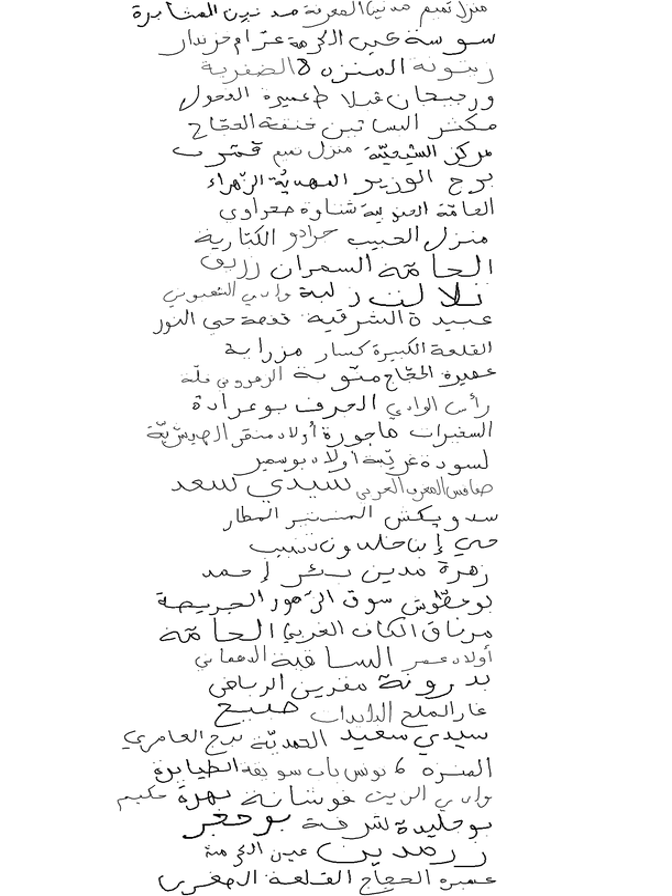 منزل تميم مدنين المعرفة مدنين المثابرة
سوسة عين الكرمة عزام خزندار
زيتونة المنزه 8 الضفرية
ورجيجان قبلاط عميرة الفحول
مكثر البساتين خنقة الحجاج
مركز الشيحيّة منزل تميم قمرت
برج الوزير المهديّة الزهراء
العامّة شناوة صحراوي
منزل الحبيب حرادو الكتارية
الحامّة السمران زريق
نلالت زلبة وادي الشعبوني
عبيدة الشرقية قفصة حي النور
القلعة الكبيرة كسار مزراية
عميرة الحجّاج متوية الزهروني
رأس الوادي الجرف بوعرادة
السفيرات هاجورة أولاد منقر الهيشريّة
لسودة غربيّة أولاد بوسمير
صفاقس المغرب العربي سيدي سعد
سدويكش المنستير المطار
حي إبن خلدون
زهرة مدين بئر أحمد
بوحطّوش سوق الزهور الجريصة
مرناق الكاف الغربي الحامّة
أولاد عمر الساقية الدهماني
بدرونة مقرين الرياض
غار الملح
سيدي سعيد الحمديّة برج العامري
المنزه 6 تونس باب سويقة الطيايرة
وادي الزيت فوشانة نهرة حكيم
بوجليدة شرقية بوحجر
رمدين عين الكرمة
عميرة الحجاج القلعة الصغرى